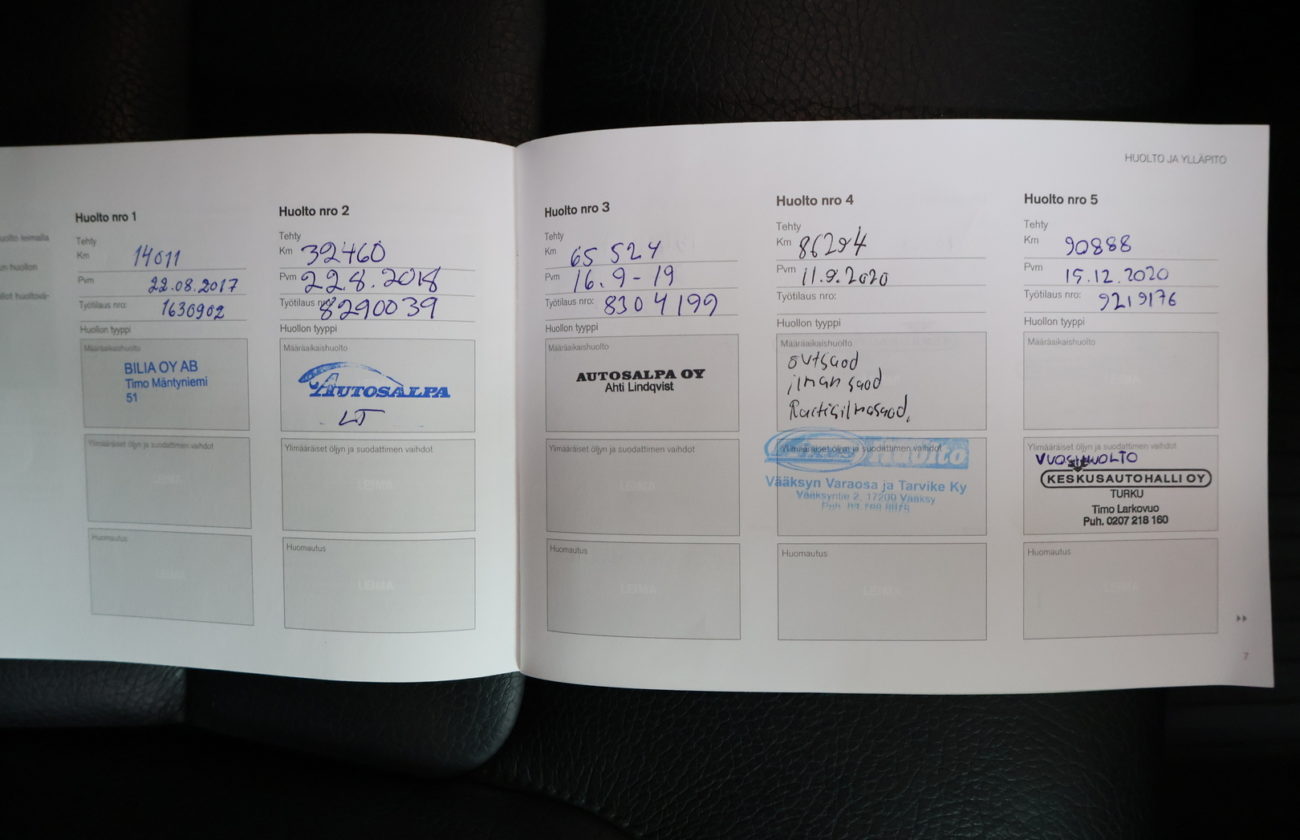 HUOLTO JA YLLÄPITO
Huolto nro 1
Tehty
Km 14011
Pvm 22.08.2017
Työtilaus nro: 1630902
Huollon tyyppi
Määräaikaishuolto
BILIA OY AB
Timo Mäntyniemi
51
Ylimääräiset öljyn ja suodattimen vaihdot
LEIMA
Huomautus
LEIMA
Huolto nro 2
Tehty
Km 39460
Pvm 22.8.2018
Työtilaus nro: 8290039
Huollon tyyppi
Määräaikaishuolto
AUTOSALPA
LT
Ylimääräiset öljyn ja suodattimen vaihdot
LEIMA
Huomautus
LEIMA
Huolto nro 3
Tehty
Km 65 524
Pvm 16.9-19
Työtilaus nro: 8304199
Huollon tyyppi
Määräaikaishuolto
AUTOSALPA OY
Ahti Lindqvist
Ylimääräiset öljyn ja suodattimen vaihdot
LEIMA
Huomautus
LEIMA
Huolto nro 4
Tehty
Km 86294
Pvm 11.9.2020
Työtilaus nro:
Huollon tyyppi
Määräaikaishuolto
öljysuod
ilman suod
Raitisilmasuod.
Ylimääräiset öljyn ja suodattimen vaihdot
Huolto
Vääksyn Varaosa ja Tarvike Ky
Vääksyntie 2, 17200 Vääksy
Puh.
Huomautus
LEIMA
Huolto nro 5
Tehty
Km 90888
Pvm 15.12.2020
Työtilaus nro: 9219176
Huollon tyyppi
Määräaikaishuolto
Ylimääräiset öljyn ja suodattimen vaihdot
VUOSIHUOLTO
KESKUSAUTOHALLI OY
TURKU
Timo Larkovuo
Puh. 0207 218 160
Huomautus
LEIMA
7